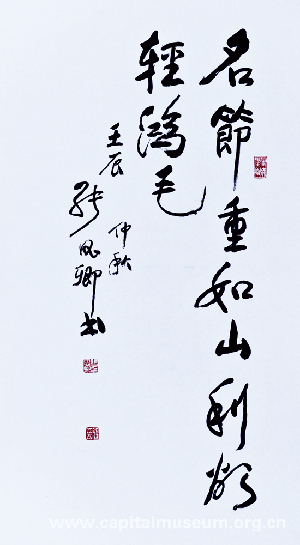 名節重如山利欲
輕鴻毛
壬辰
仲秋
张卿书
www.capitalmuseum.org.cn